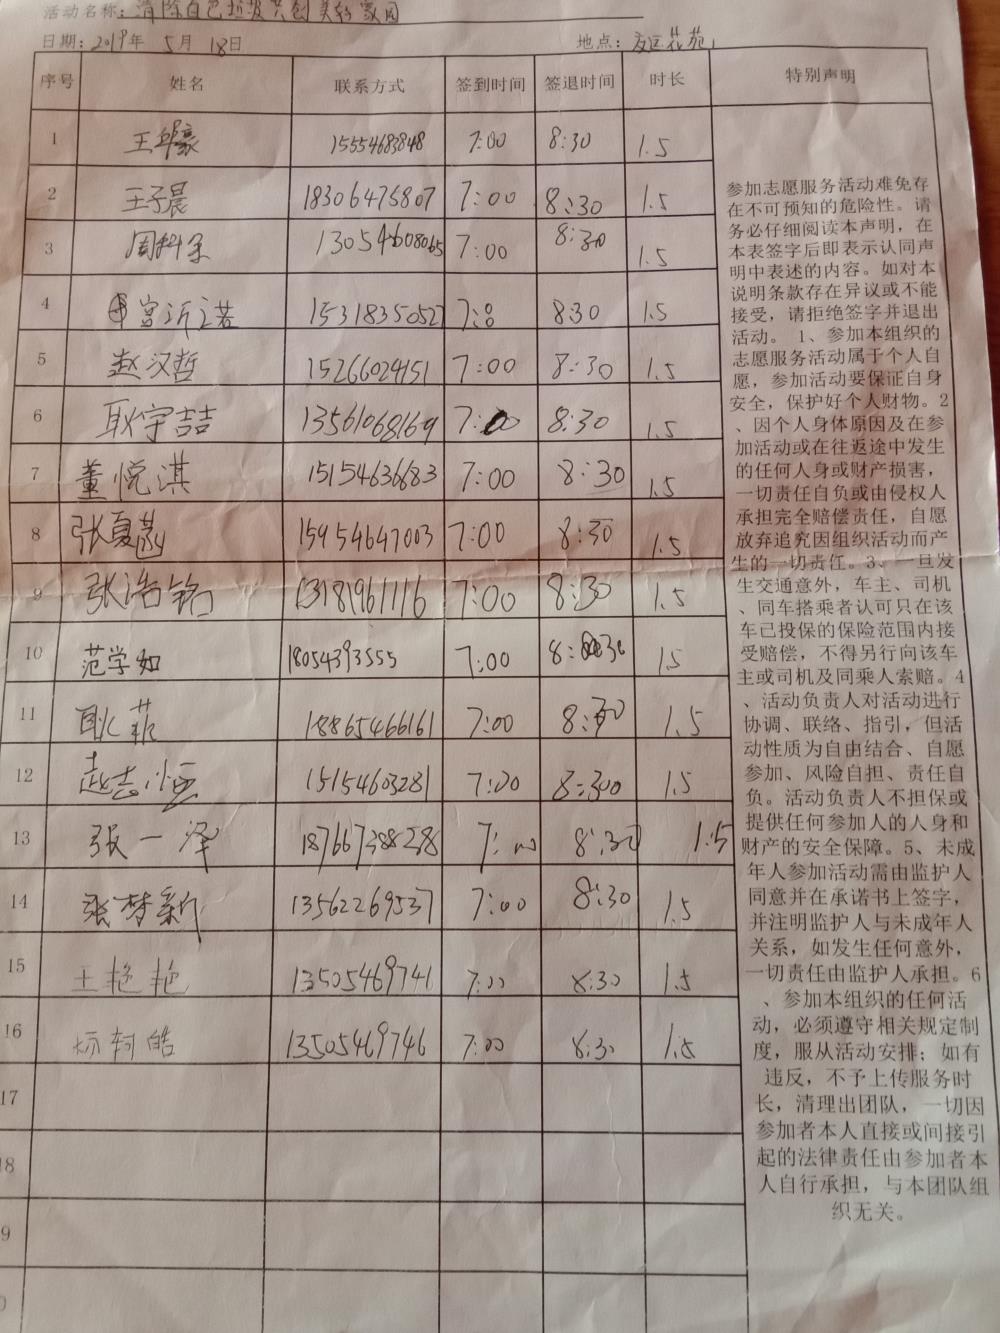 活动名称：清除白色垃圾共创美好家园
日期：2019年 5月 18日 地点：友区花苑
序号 姓名 联系方式 签到时间 签退时间 时长 特别声明
1 15554683848 7:00 8:30 1.5
2 王子晨 18306475807 7:00 8:30 1.5
3 周科 13054608065 7:00 8:30 1.5
4 15318350527 7:00 8:30 1.5
5 赵汉哲 15266024151 7:00 8:30 1.5
6 耿宇喆 13561068169 7:00 8:30 1.5
7 董悦淇 15154636683 7:00 8:30 1.5
8 张夏菡 15954647003 7:00 8:30 1.5
9 张浩铭 13181961116 7:00 8:30 1.5
10 范学如 18054393555 7:00 8:30 1.5
11 耿菲 18865466161 7:00 8:30 1.5
12 赵志恒 15154603281 7:00 8:300 1.5
13 张一泽 18766738828 7:00 8:30 1.5
14 张梦新 13562269537 7:00 8:30 1.5
15 王艳艳 13505469741 7:00 8:30 1.5
16 轲皓 13505469746 7:00 8:30 1.5
17
18
参加志愿服务活动难免存
在不可预知的危险性。请
务必仔细阅读本声明，在
本表签字后即表示认同声
明中表述的内容。如对本
说明条款存在异议或不能
接受，请拒绝签字并退出
活动。 1、参加本组织的
志愿服务活动属于个人自
愿，参加活动要保证自身
安全，保护好个人财物。2
、因个人身体原因及在参
加活动或在往返途中发生
的任何人身或财产损害，
一切责任自负或由侵权人
承担完全赔偿责任，自愿
放弃追究因组织活动而产
生的一切责任。3、一旦发
生交通意外，车主、司机
、同车搭乘者认可只在该
车已投保的保险范围内接
受赔偿，不得另行向该车
主或司机及同乘人索赔。4
、活动负责人对活动进行
协调、联络、指引，但活
动性质为自由结合、自愿
参加、风险自担、责任自
负。活动负责人不担保或
提供任何参加人的人身和
财产的安全保障。5、未成
年人参加活动需由监护人
同意并在承诺书上签字，
并注明监护人与未成年人
关系，如发生任何意外，
一切责任由监护人承担。6
、参加本组织的任何活
动，必须遵守相关规定制
度，服从活动安排；如有
违反，不予上传服务时
长，清理出团队，一切因
参加者本人直接或间接引
起的法律责任由参加者本
人自行承担，与本团队组
织无关。